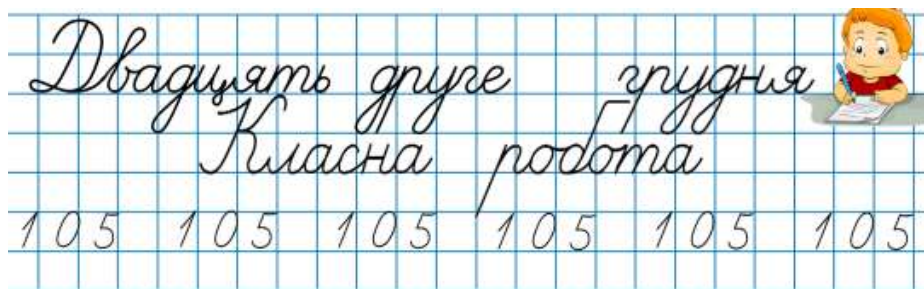 Двадцять друге грудня
Класна робота
105 105 105 105 105 105